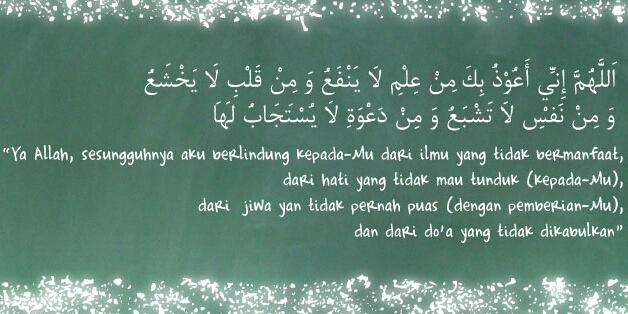 اَللَّهُمَّ إِنِّي أَعُوْذُ بِكَ مِنْ عِلْمٍ لَا يَنْفَعُ وَ مِنْ قَلْبٍ لَا يَخْشَعُ
وَ مِنْ نَفْسٍ لَا تَشْبَعُ وَ مِنْ دَعْوَةٍ لَا يُسْتَجَابُ لَهَا
“Ya Allah, sesungguhnya aku berlindung kepada-Mu dari ilmu yang tidak bermanfaat,
dari hati yang tidak mau tunduk (kepada-Mu),
dari jiwa yan tidak pernah puas (dengan pemberian-Mu),
dan dari do'a yang tidak dikabulkan”